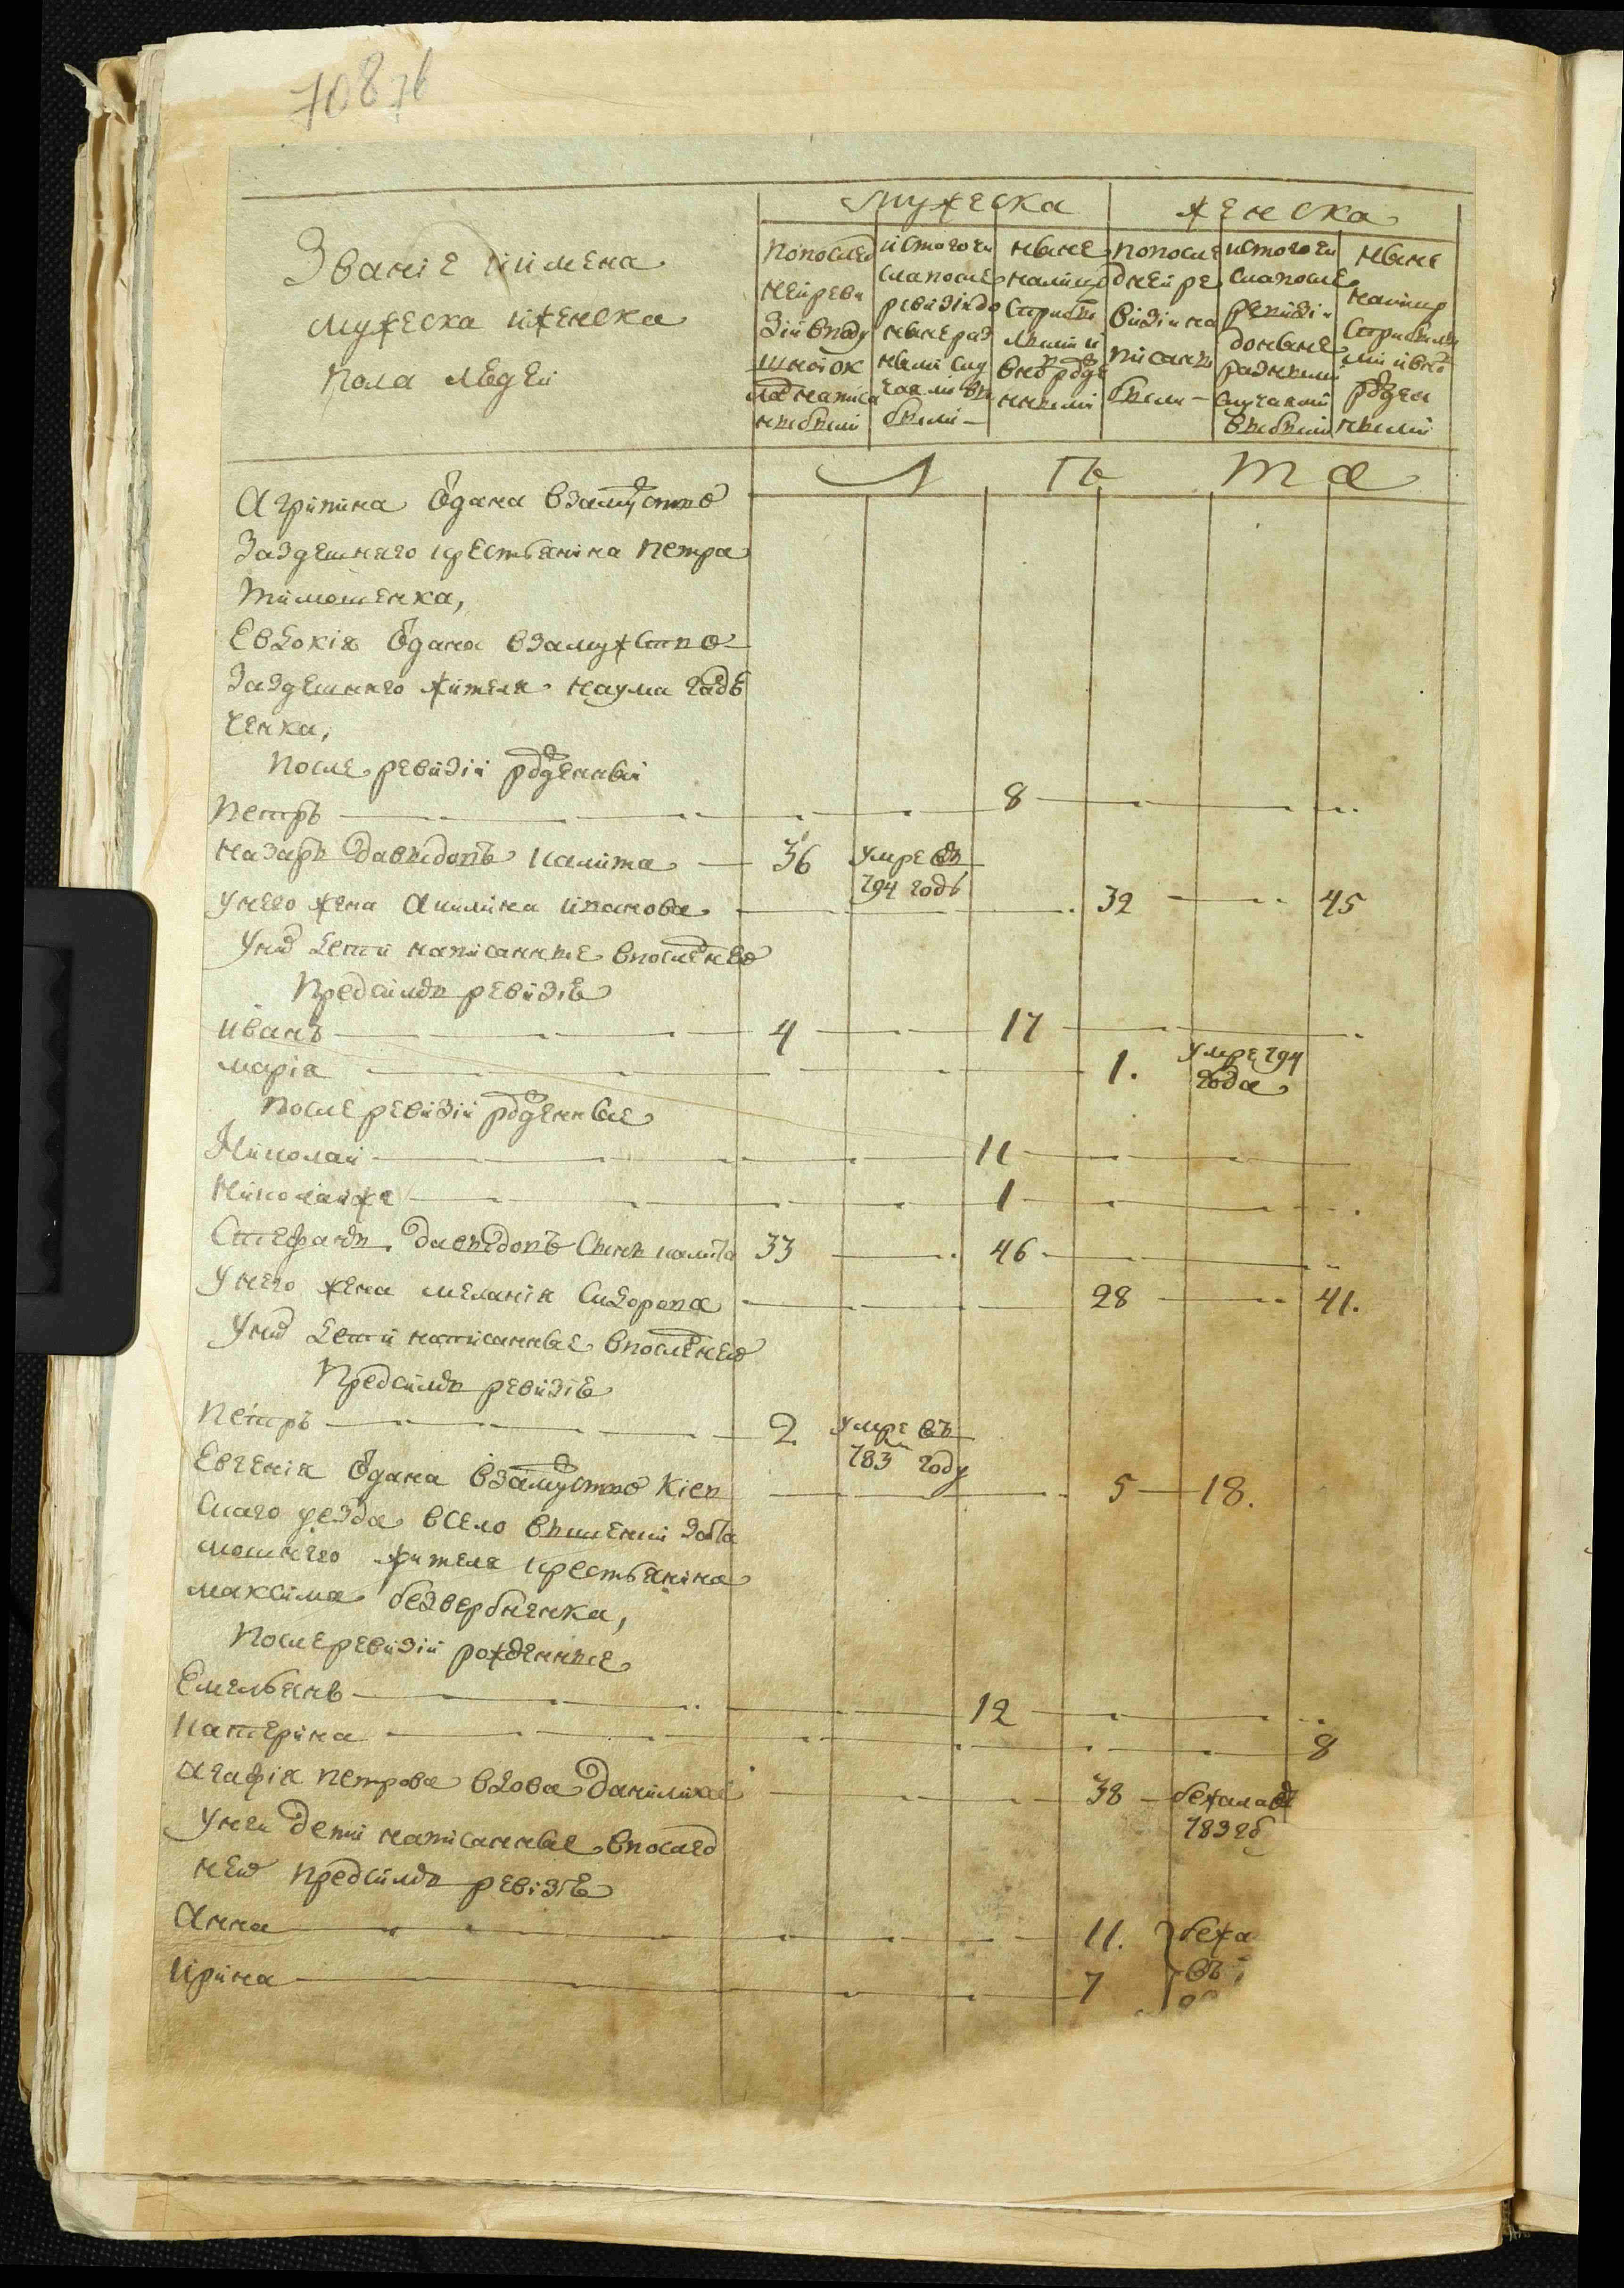 708 зв
Мужеска Женска
Званіе и имена
мужеска и женска
пола людей
по послед
ней реви
зіи в поду
шной ок
лад написа
ных были
и с того чи
сла после
ревизіи до
ныне раз
ными слу
чаями вы
были
ныне
на лицо
с прибы
лыми и
внов рожде
нными
по после
дней ре
визіи на
писаны
были
и с того чи
сла после
ревизіи
до ныне
разными
случаями
выбыли
ныне
на лицо
с прибылы
ми и внов
рожден
ными
Лѣта
Агрипина отдана в замужство
за здешняго крестьянина Петра
Тимошенка,
Евдокія отдана в замужство
за здешняго жителя Наума Гадь
ченка,
после ревизіи рожденный
Петръ 8
Назаръ Давыдовъ Калита 36 умре въ
794 годѣ
у него жена Акилина Иванова 32 45
у них дети написанные в последнею
пред симъ ревизію
Иванъ 4 17
Марія 1. умре 794
года
после ревизіи рожденные
Николай 11
Николай же 1
Стефанъ Давыдовъ сынъ Калита 33 46
у него жена Меланія Сидорова 28 41.
у них дети написанные в последнею
пред симъ ревизію
Петръ 2 умре въ
783м году
Евгенія отдана в замужство Кіев 5 18.
скаго уезда в село за та
мошнего жителя крестьянина
Максима Безвербненка,
после ревизіи рожденные
Емельянъ 12
Катерина 8
Агафія Петрова вдова Данилиха 38 бежала въ
783 го
у неи дети написанные в послед
нею пред симъ ревизію
Анна 11. бежа
Ирина 7 въ